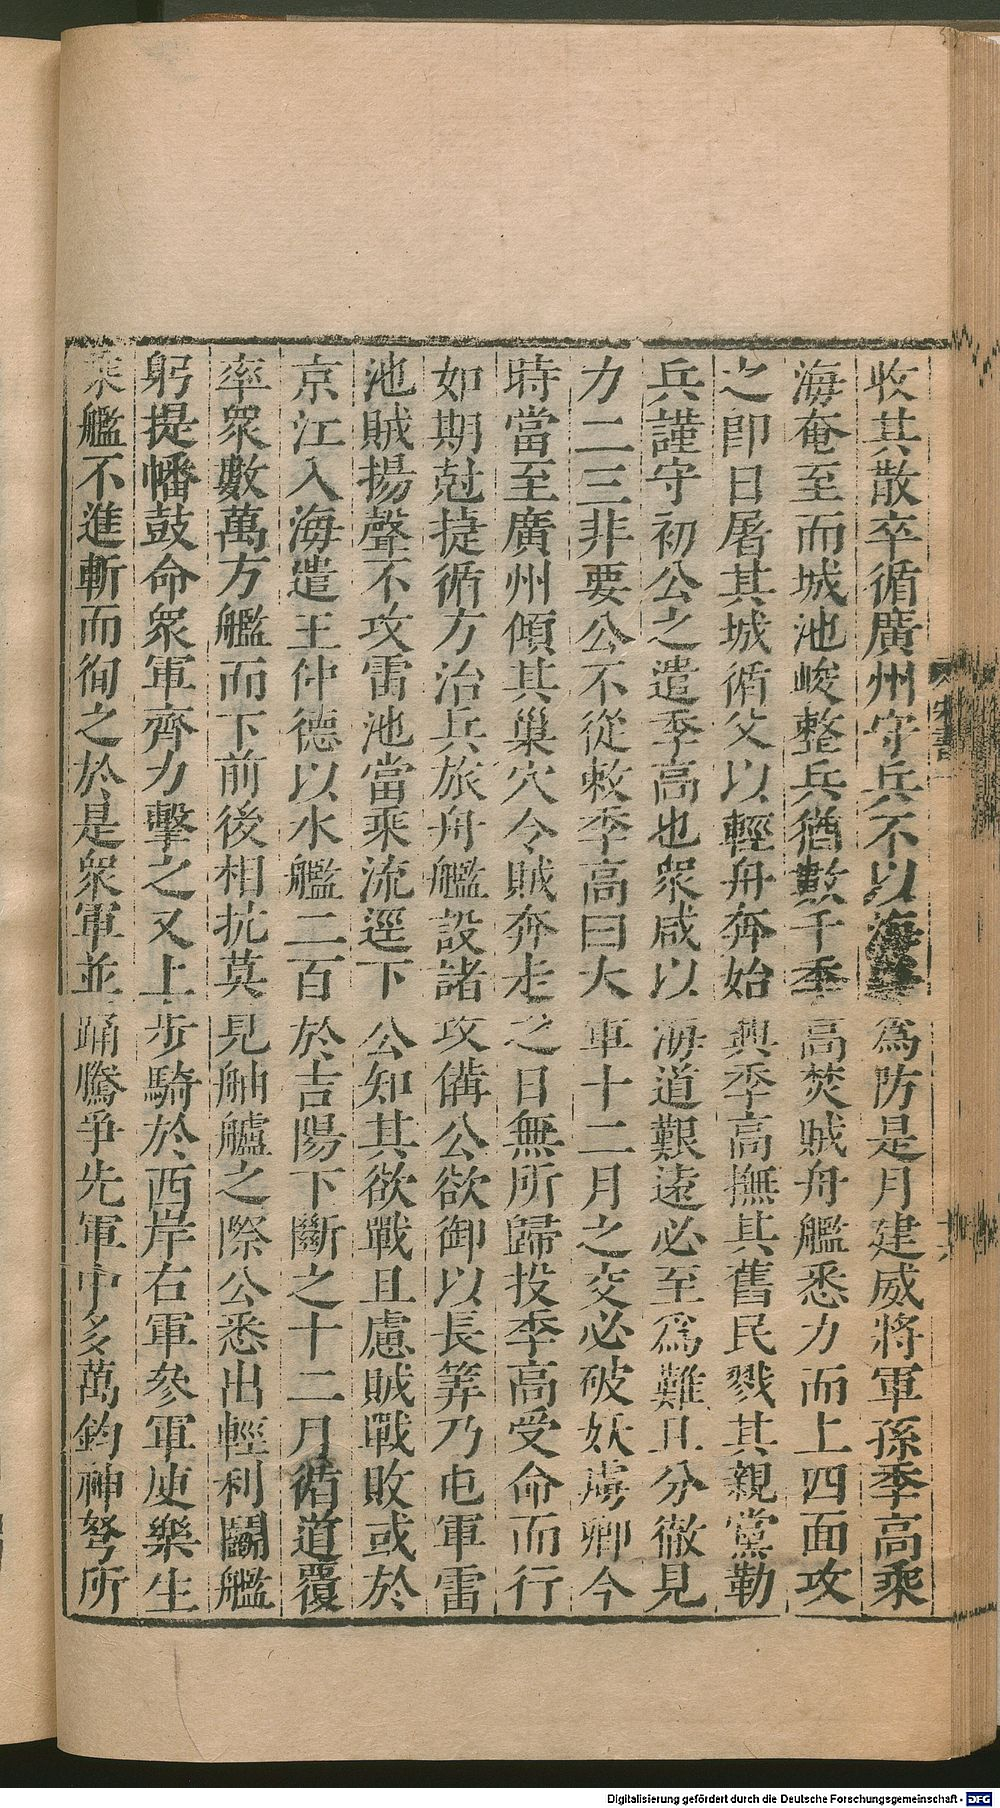 收其散卒循廣州守兵不以海道爲防是月建威將軍孫季高乘
海奄至而城池峻整兵猶數千季高焚賊舟艦悉力而上四面攻
之即日屠其城循父以輕舟奔始興季高撫其舊民戮其親黨勒
兵謹守初公之遣季高也衆咸以海道艱遠必至爲難且分徹見
力二三非要公不從敕季高曰大軍十二月之交必破妖虜卿今
時當至廣州傾其巢穴令賊奔走之日無所歸投季高受命而行
如期尅捷循方治兵旅舟艦設諸攻備公欲御以長筭乃屯軍雷
池賊揚聲不攻雷池當乘流逕下公知其欲戰且慮賊戰敗或於
京江入海遣王仲德以水艦二百於吉陽下斷之十二月循道覆
率衆數萬方艦而下前後相抗莫見舳艫之際公悉出輕利鬭艦
躬提幡鼓命衆軍齊力擊之又上步騎於西岸右軍參軍庾樂生
乘艦不進斬而徇之於是衆軍並踊騰爭先軍中多萬鈞神弩所
Digitalisierung gefördert durch die Deutsche Forschungsgemeinschaft - DFG